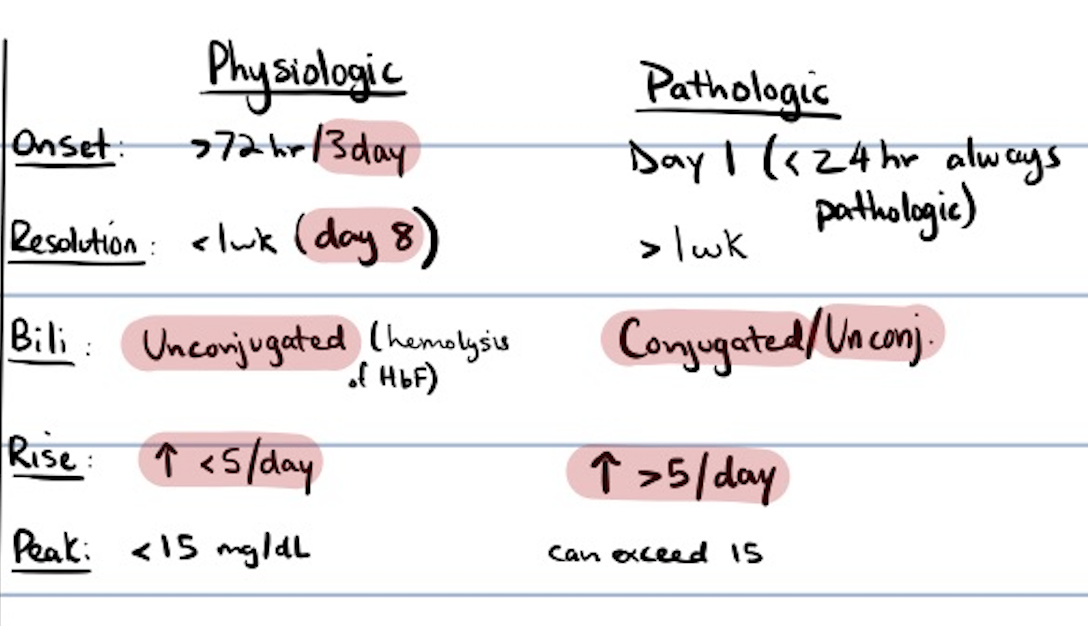 Physiologic Pathologic
Onset: >72 hr/3day Day 1 (<24 hr always
pathologic)
Resolution: <1wk (day 8) >1wk
Bili: Unconjugated (hemolysis Conjugated/Unconj.
of HbF)
Rise: ↑ <5/day ↑ >5/day
Peak: <15 mg/dL can exceed 15